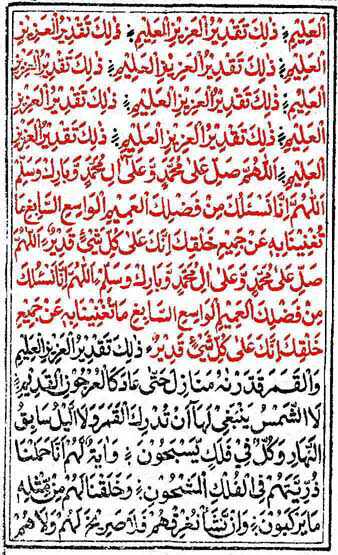 الْعَلِيْمِ ۞ ذٰلِكَ تَقْدِيْرُ الْعَزِيْزِ الْعَلِيْمِ ۞ ذٰلِكَ تَقْدِيْرُ الْعَزِيْزِ
الْعَلِيْمِ ۞ ذٰلِكَ تَقْدِيْرُ الْعَزِيْزِ الْعَلِيْمِ ۞ ذٰلِكَ تَقْدِيْرُ الْعَزِيْزِ
الْعَلِيْمِ ۞ ذٰلِكَ تَقْدِيْرُ الْعَزِيْزِ الْعَلِيْمِ ۞ ذٰلِكَ تَقْدِيْرُ الْعَزِيْزِ
الْعَلِيْمِ ۞ ذٰلِكَ تَقْدِيْرُ الْعَزِيْزِ الْعَلِيْمِ ۞ ذٰلِكَ تَقْدِيْرُ الْعَزِيْزِ
الْعَلِيْمِ ۞ اَللّٰهُمَّ صَلِّ عَلٰى مُحَمَّدٍ وَّعَلٰٓى اٰلِ مُحَمَّدٍ وَّبَارِكْ وَسَلِّمْ
اَللّٰهُمَّ اِنَّا نَسْئَلُكَ مِنْ فَضْلِكَ الْعَمِيْمِ الْوَاسِعِ السَّابِغِ مَا
تُغْنِيْنَا بِهٖ عَنْ جَمِيْعِ خَلْقِكَ اِنَّكَ عَلٰى كُلِّ شَيْءٍ قَدِيْرٌ اَللّٰهُمَّ
صَلِّ عَلٰى مُحَمَّدٍ وَّعَلٰٓى اٰلِ مُحَمَّدٍ وَّبَارِكْ وَسَلِّمْ اَللّٰهُمَّ اِنَّا نَسْئَلُكَ
مِنْ فَضْلِكَ الْعَمِيْمِ الْوَاسِعِ السَّابِغِ مَا تُغْنِيْنَا بِهٖ عَنْ جَمِيْعِ
خَلْقِكَ اِنَّكَ عَلٰى كُلِّ شَيْءٍ قَدِيْرٌ ذٰلِكَ تَقْدِيْرُ الْعَزِيْزِ الْعَلِيْمِ
وَالْقَمَرَ قَدَّرْنٰهُ مَنَازِلَ حَتّٰى عَادَ كَالْعُرْجُوْنِ الْقَدِيْمِ
لَا الشَّمْسُ يَنْبَغِيْ لَهَآ اَنْ تُدْرِكَ الْقَمَرَ وَلَا الَّيْلُ سَابِقُ
النَّهَارِ وَكُلٌّ فِيْ فَلَكٍ يَّسْبَحُوْنَ ۞ وَاٰيَةٌ لَّهُمْ اَنَّا حَمَلْنَا
ذُرِّيَّتَهُمْ فِي الْفُلْكِ الْمَشْحُوْنِ ۞ وَخَلَقْنَا لَهُمْ مِّنْ مِّثْلِهٖ
مَا يَرْكَبُوْنَ ۞ وَاِنْ نَّشَاْ نُغْرِقْهُمْ فَلَا صَرِيْخَ لَهُمْ وَلَا هُمْ